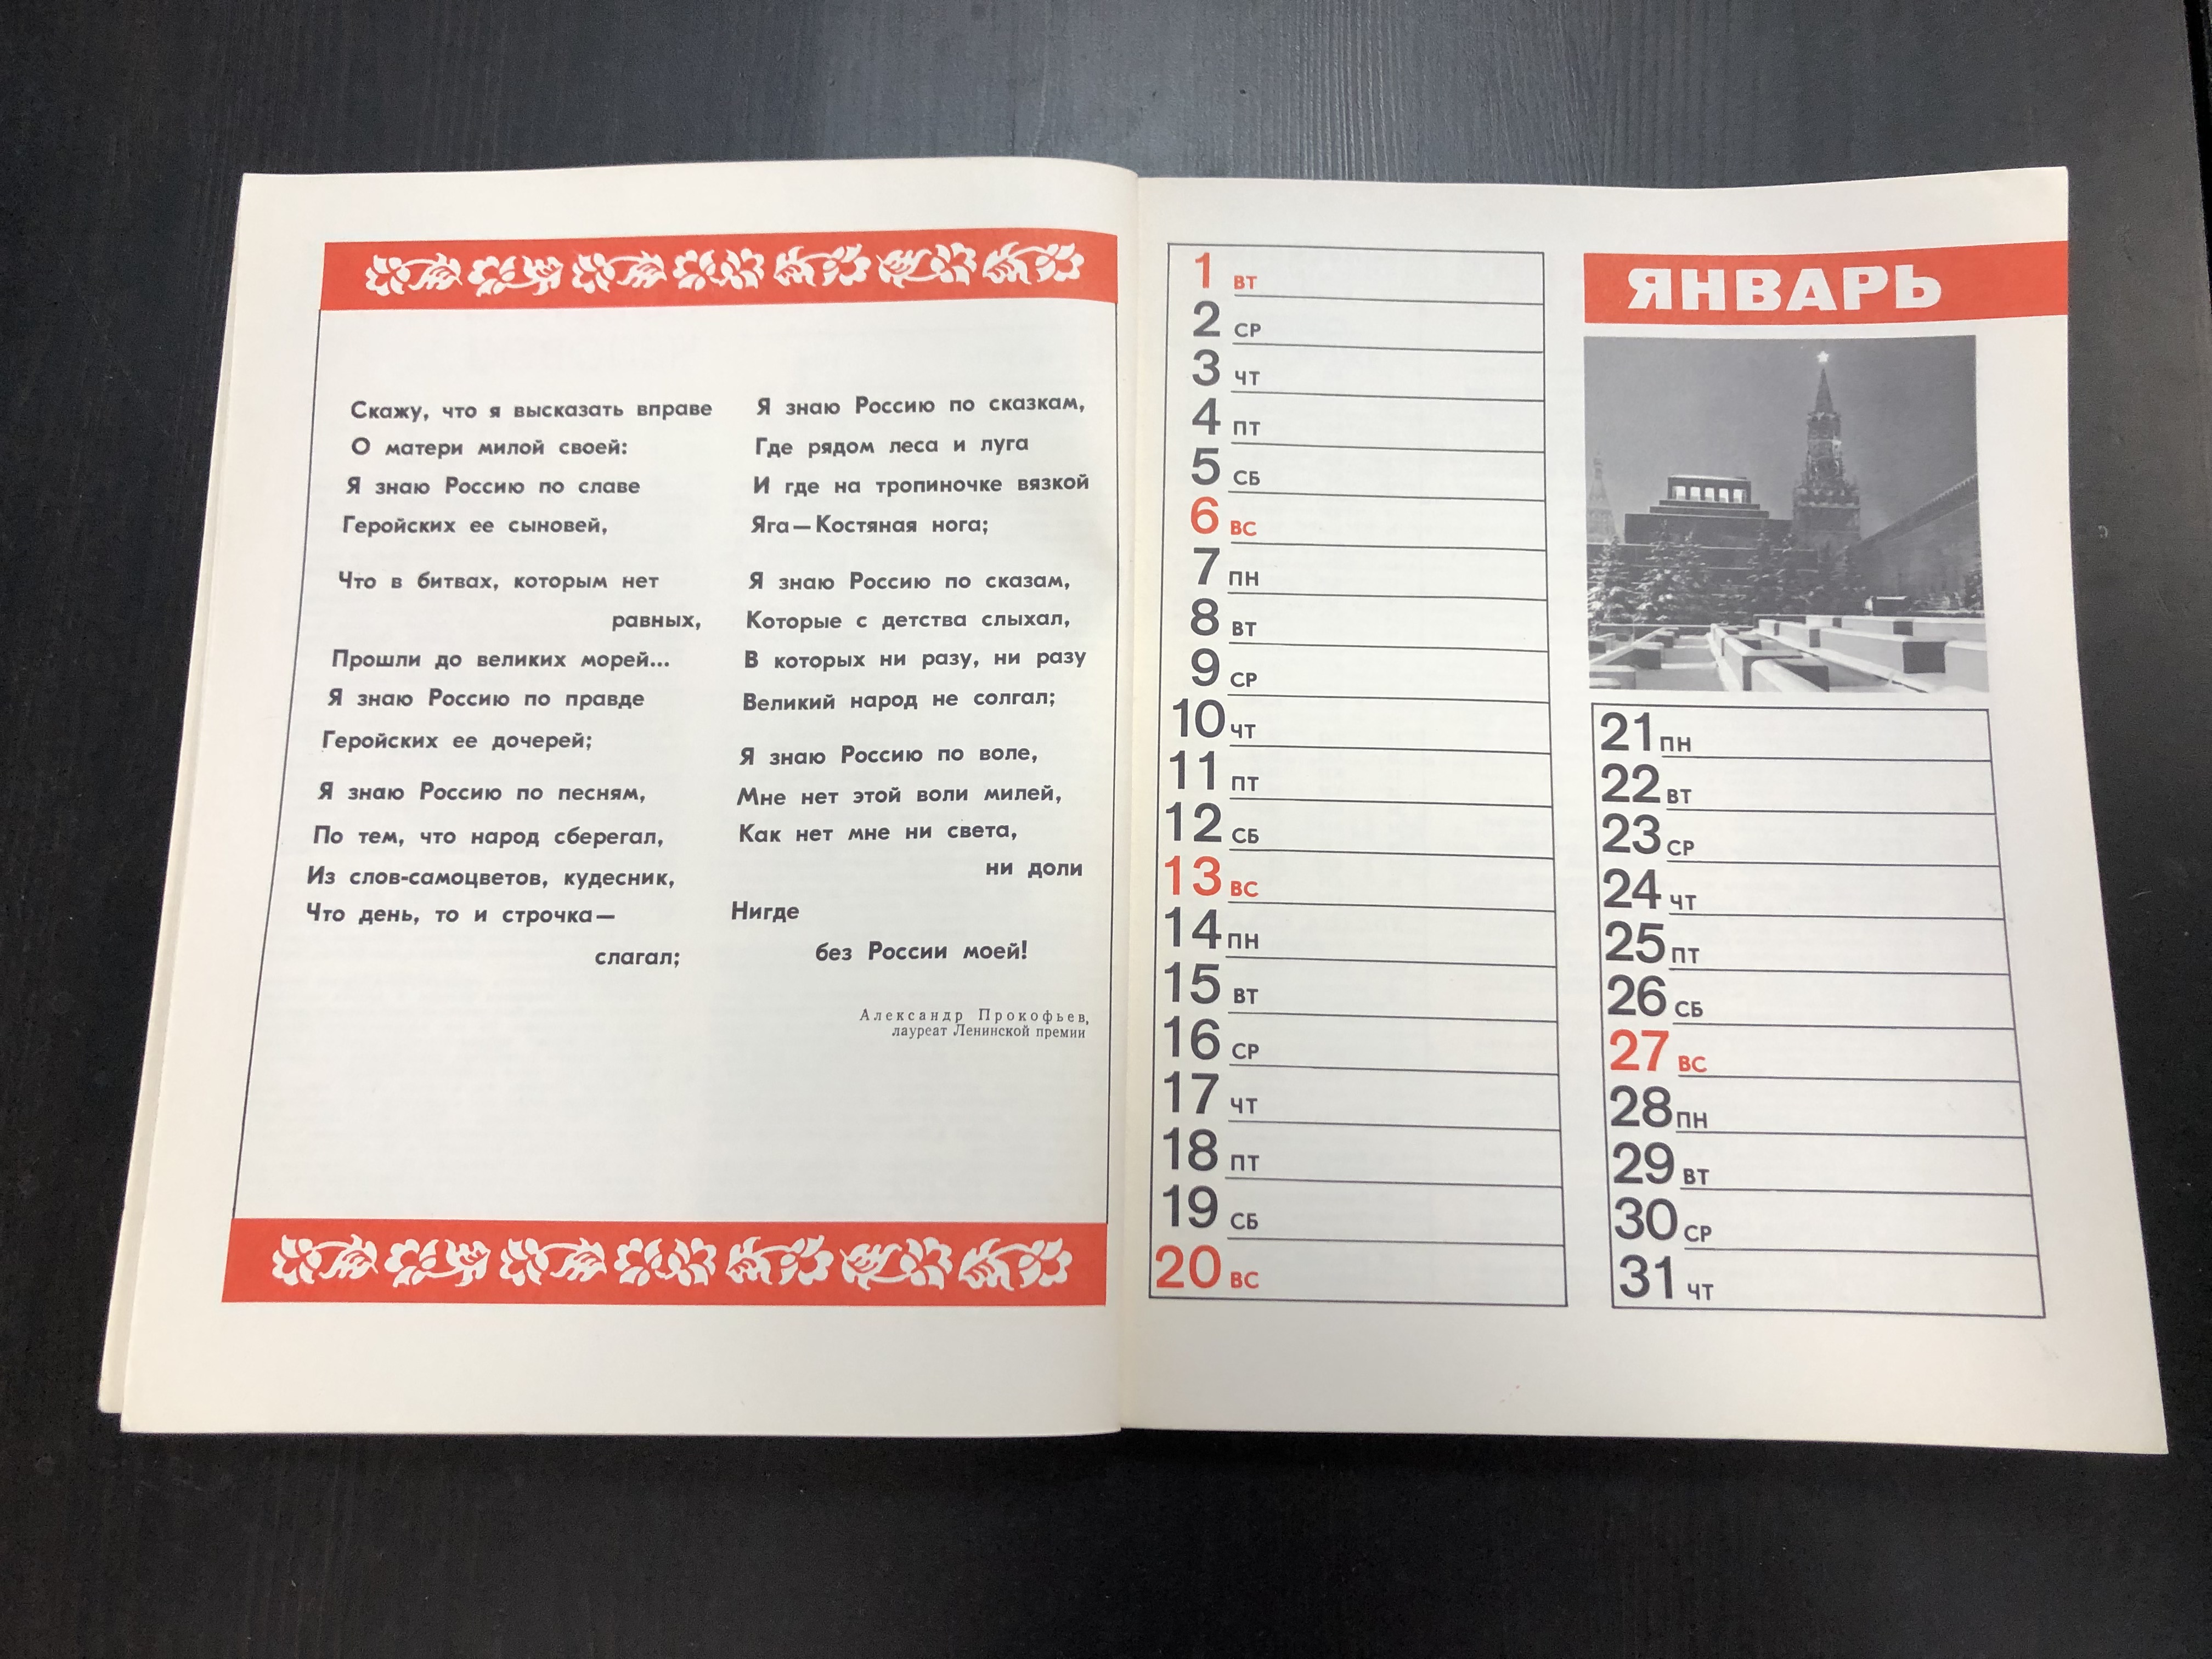 Скажу, что я высказать вправе
О матери милой своей:
Я знаю Россию по славе
Геройских ее сыновей,
Что в битвах, которым нет
равных,
Прошли до великих морей...
Я знаю Россию по правде
Геройских ее дочерей;
Я знаю Россию по песням,
По тем, что народ сберегал,
Из слов-самоцветов, кудесник,
Что день, то и строчка—
слагал;
Я знаю Россию по сказкам,
Где рядом леса и луга
И где на тропиночке вязкой
Яга—Костяная нога;
Я знаю Россию по сказам,
Которые с детства слыхал,
В которых ни разу, ни разу
Великий народ не солгал;
Я знаю Россию по воле,
Мне нет этой воли милей,
Как нет мне ни света,
ни доли
Нигде
без России моей!
Александр Прокофьев,
лауреат Ленинской премии
1 ВТ
2 СР
3 ЧТ
4 ПТ
5 СБ
6 ВС
7 ПН
8 ВТ
9 СР
10 ЧТ
11 ПТ
12 СБ
13 ВС
14 ПН
15 ВТ
16 СР
17 ЧТ
18 ПТ
19 СБ
20 ВС
ЯНВАРЬ
21 ПН
22 ВТ
23 СР
24 ЧТ
25 ПТ
26 СБ
27 ВС
28 ПН
29 ВТ
30 СР
31 ЧТ